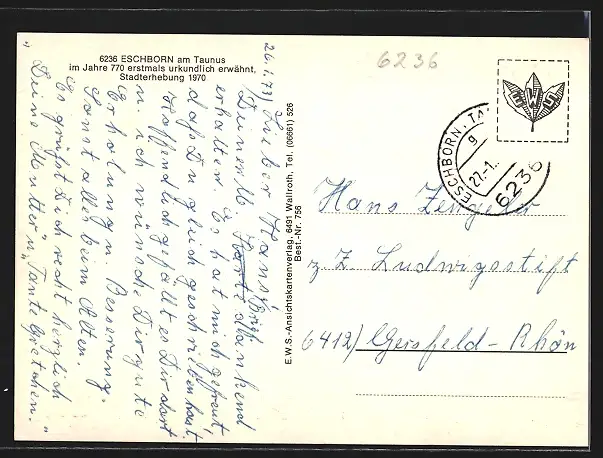 6236 ESCHBORN am Taunus
im Jahre 770 erstmals urkundlich erwähnt,
Stadterhebung 1970
26.1.73) Lieber Hans!
Deinen lb. Karte Brief dankend
erhalten. Es hat mich gefreut,
daß Du gleich geschrieben hast.
Hoffendlich gefällt es Dir dort
u. ich wünsche Dir gute
Erholung u. Besserung.
Sonst alles beim Alten.
Es grüßt Dich recht herzlich
" Deine Mutter u. "Tante Gretchen. "
E.W.S.-Ansichtskartenverlag, 6491 Wallroth, Tel. (06661) 526
Best.-Nr. 756
6236
EWS
ESCHBORN, TA
9
27.-1.
6236
Hans
z Z Ludwigsstift
6412) Gersfeld-Rhön